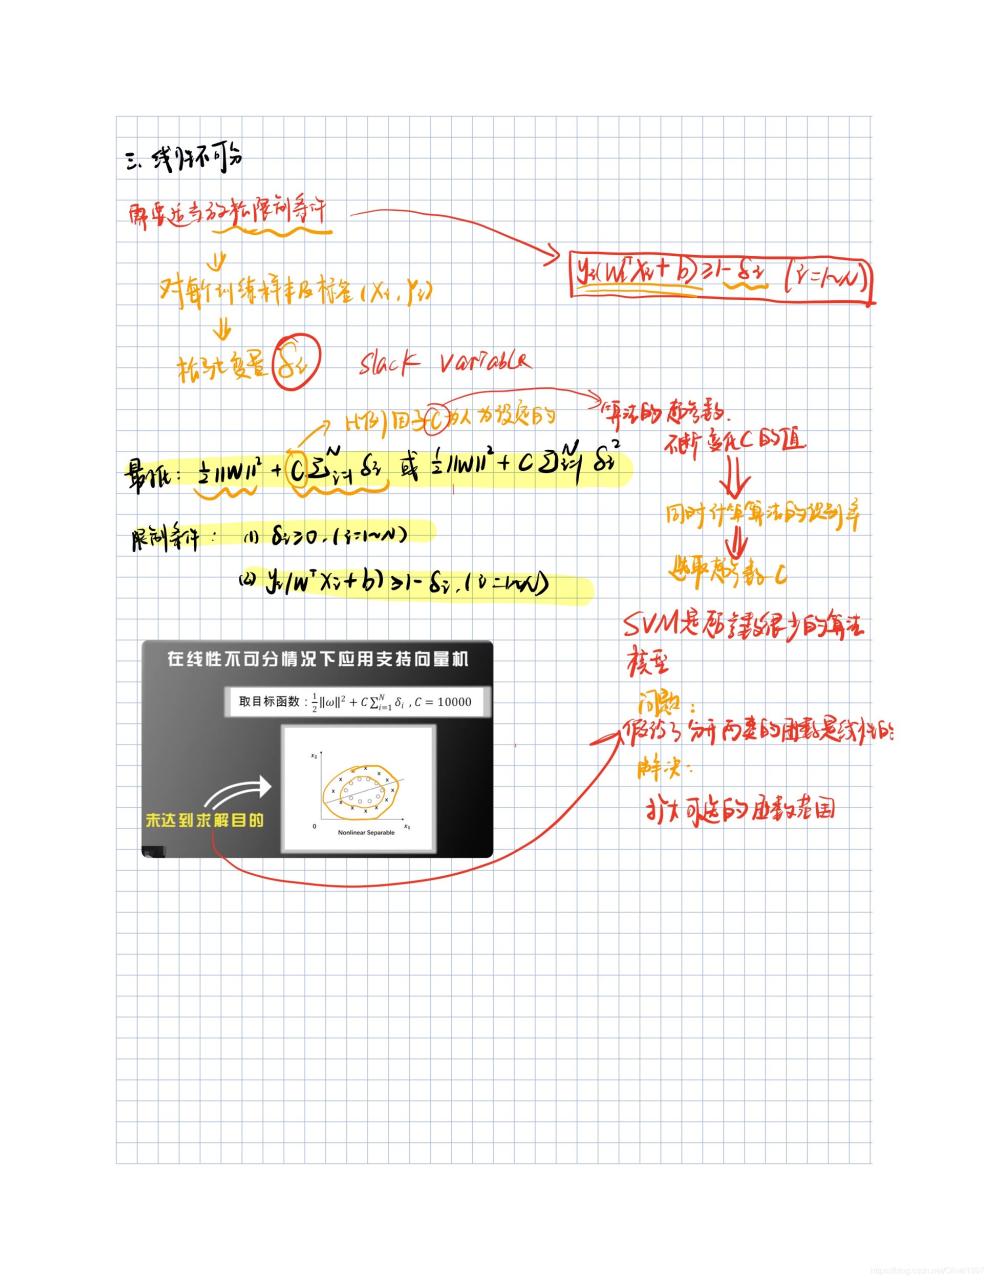 三、线性不可分
需要适当放松限制条件
y_i(W^T X_i + b) ≥ 1 - δ_i (i=1~N)
对每个训练样本及标签 (X_i, Y_i)
松弛变量 δ_i slack variable
比例因子 C 为人为设定的
算法的超参数.
不断变化C的值
最小化: ½||W||² + C Σ_{i=1}^N δ_i 或 ½||W||² + C Σ_{i=1}^N δ_i²
同时计算算法的识别率
限制条件: (1) δ_i ≥ 0, (i=1~N)
选取超参数 C
(2) y_i(W^T X_i + b) ≥ 1 - δ_i, (i=1~N)
SVM是超参数很少的算法
模型
问题:
假设了分开两类的函数是线性的
解决:
扩大可选的函数范围
在线性不可分情况下应用支持向量机
取目标函数: ½||ω||² + C Σ_{i=1}^N δ_i , C = 10000
x₂
未达到求解目的
0
x₁
Nonlinear Separable